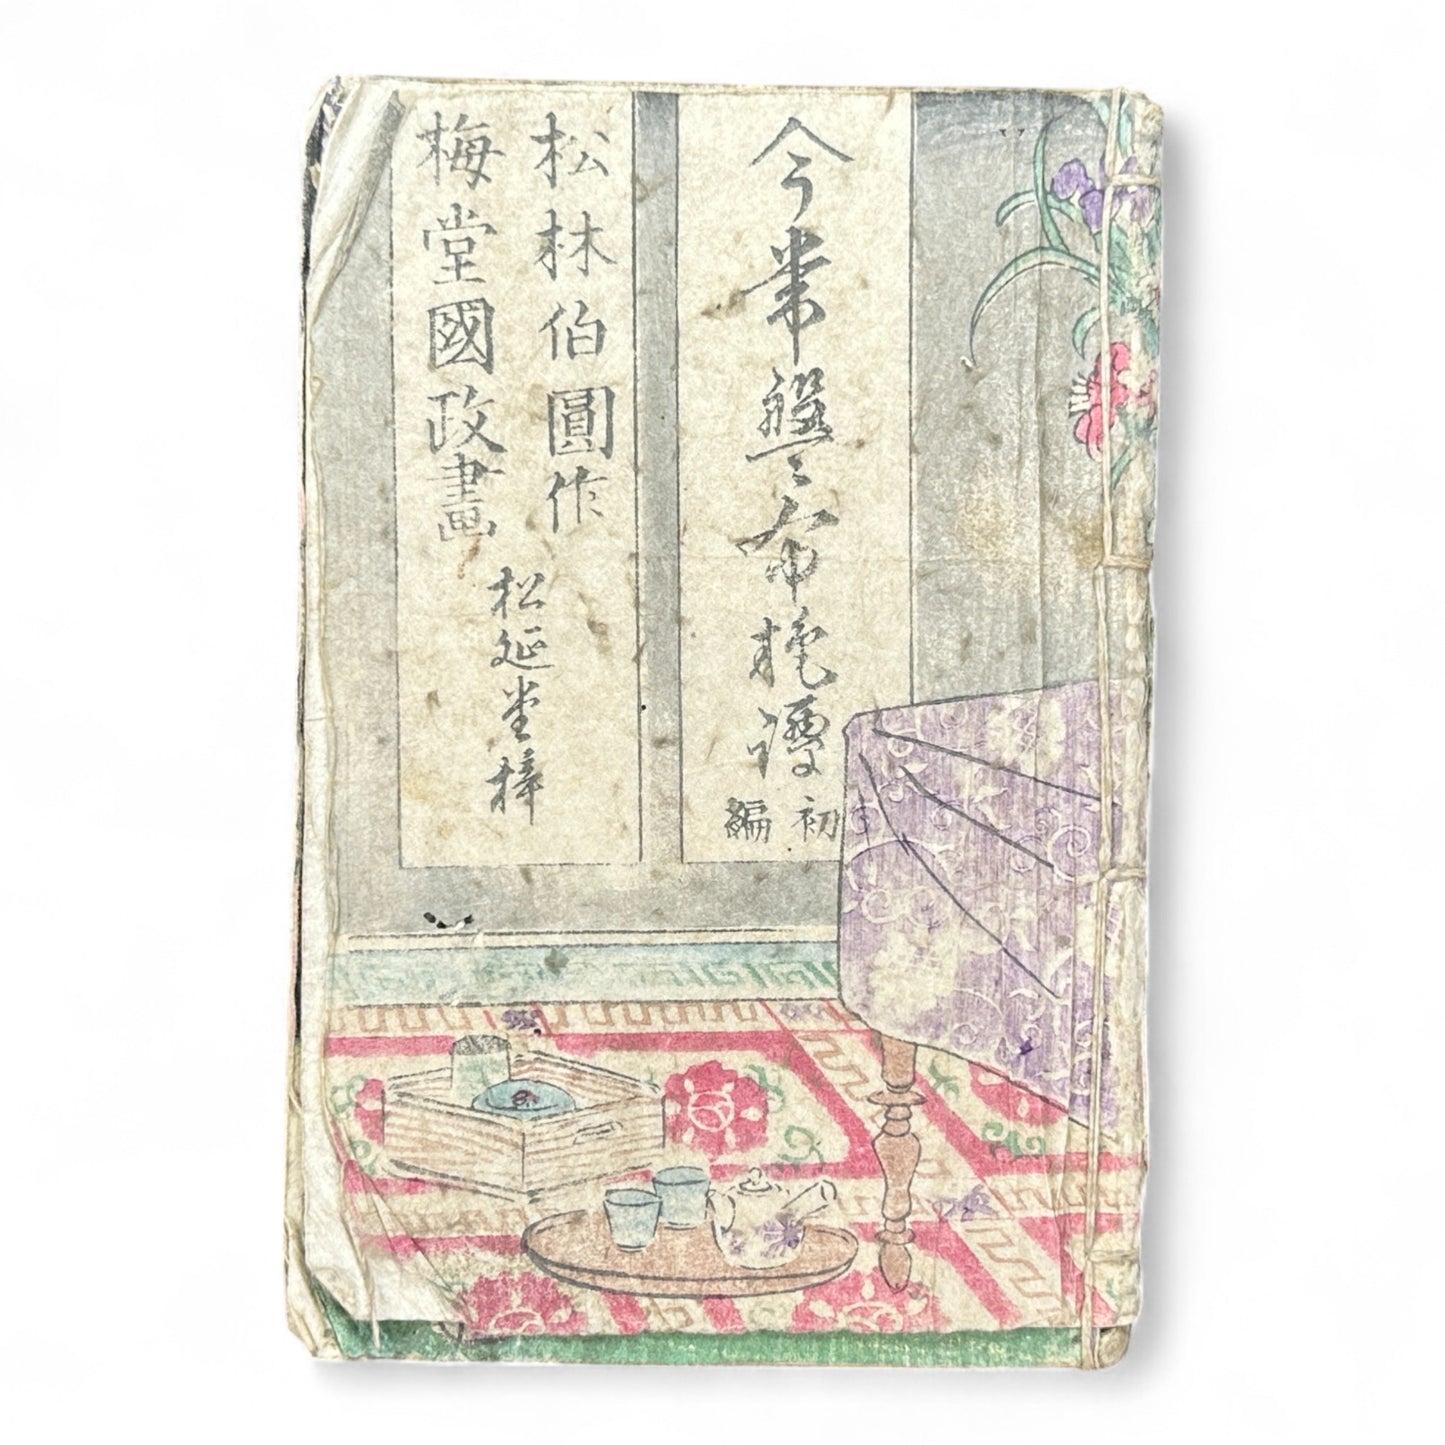 今常盤布施譚
初編
松林伯圓作
梅堂國政畫
松延堂梓